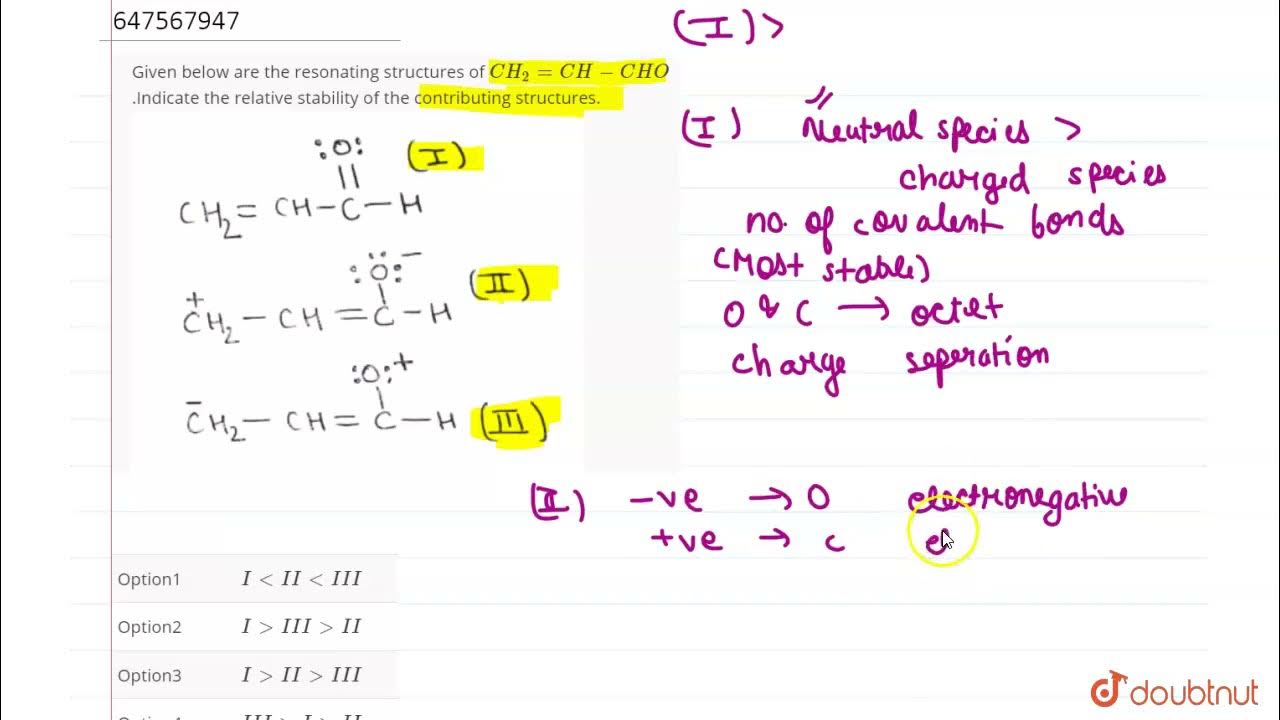 647567947
(I) >
Given below are the resonating structures of CH₂ = CH − CHO
.Indicate the relative stability of the contributing structures.
:O: (I)
||
CH₂= CH−C−H
:Ö:⁻ (II)
|
⁺CH₂− CH =C−H
:O:⁺
|
⁻CH₂− CH=C−H (III)
(I) Neutral species >
charged species
no. of covalent bonds
(Most stable)
O & C → octet
charge seperation
(II) −ve → O electronegative
+ve → C e
Option1 I < II < III
Option2 I > III > II
Option3 I > II > III
doubtnut